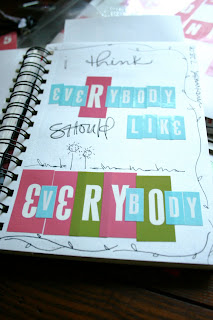 I think
EVERYBODY
SHOULD LIKE
EVERYBODY